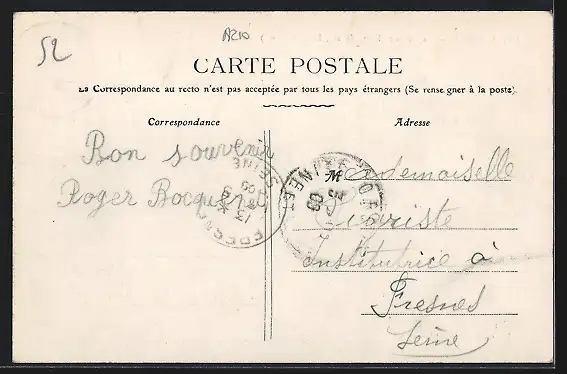 52
A210
CARTE POSTALE
La Correspondance au recto n'est pas acceptée par tous les pays étrangers (Se renseigner à la poste).
Correspondance
Adresse
Bon souvenir
Roger
Mademoiselle
Institutrice à
Fresnes
Seine
FRESNES
SEINE
13
09